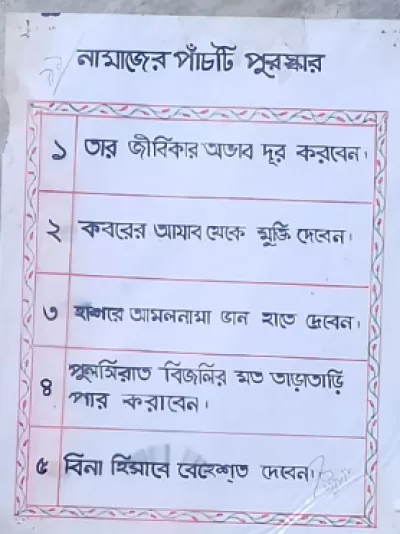 নামাজের পাঁচটি পুরস্কার
১ তার জীবিকার অভাব দূর করবেন।
২ কবরের আযাব থেকে মুক্তি দেবেন।
৩ হাশরে আমলনামা ডান হাতে দেবেন।
৪ পুলসিরাত বিজলির মত তাড়াতাড়ি
পার করাবেন।
৫ বিনা হিসাবে বেহেশ্ত দেবেন।